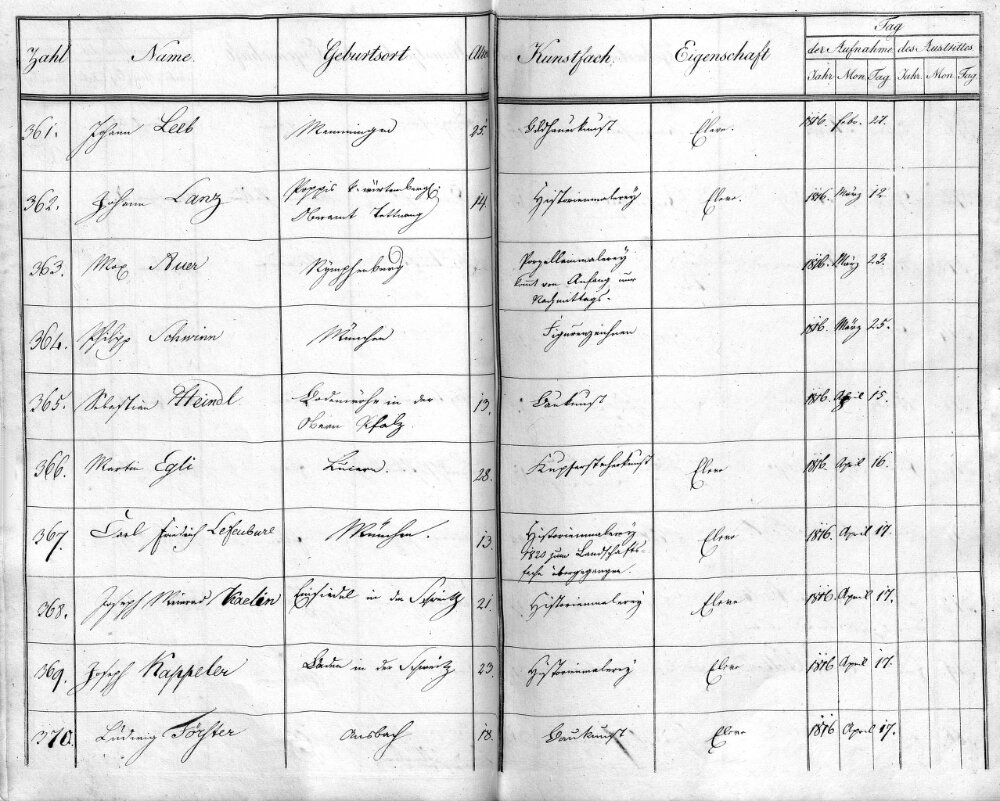 Zahl Name. Geburtsort Alter Kunstfach. Eigenschaft Tag
der Aufnahme des Austrittes
Jahr Mon. Tag Jahr. Mon. Tag
361. Johann Leeb Memmingen 25. Bildhauerkunst Eleve. 1816. febr. 27.
362. Johann Lanz
Oberamt Tettnang 14. Historienmalerey Eleve. 1816. März 12.
363. Max Auer Nymphenburg Porzellanmalerey
kömmt von Anfang nur
Nachmittags. 1816. März 23.
364. Philipp Schwinn München Figurenzeichnen 1816. März 25.
365. Sebastian Heindl Bodenwöhr in der
Obern Pfalz. 13. Baukunst 1816. April 15.
366. Martin Egli Lucern. 28. Kupferstecherkunst Eleve 1816. April 16.
367. Carl Friedrich Lefeubure München. 13. Historienmalerey
1820 zum Landschafts-
fache übergegangen. Eleve 1816. April 17.
368. Joseph Meinrad Kaelin Einsiedel in der Schweitz 21. Historienmalerey Eleve 1816. April 17.
369. Joseph Kappeler Baden in der Schweitz 23. Historienmalerey Eleve 1816 April 17.
370. Ludwig Förster Ansbach 18. Baukunst Eleve 1816 April 17.